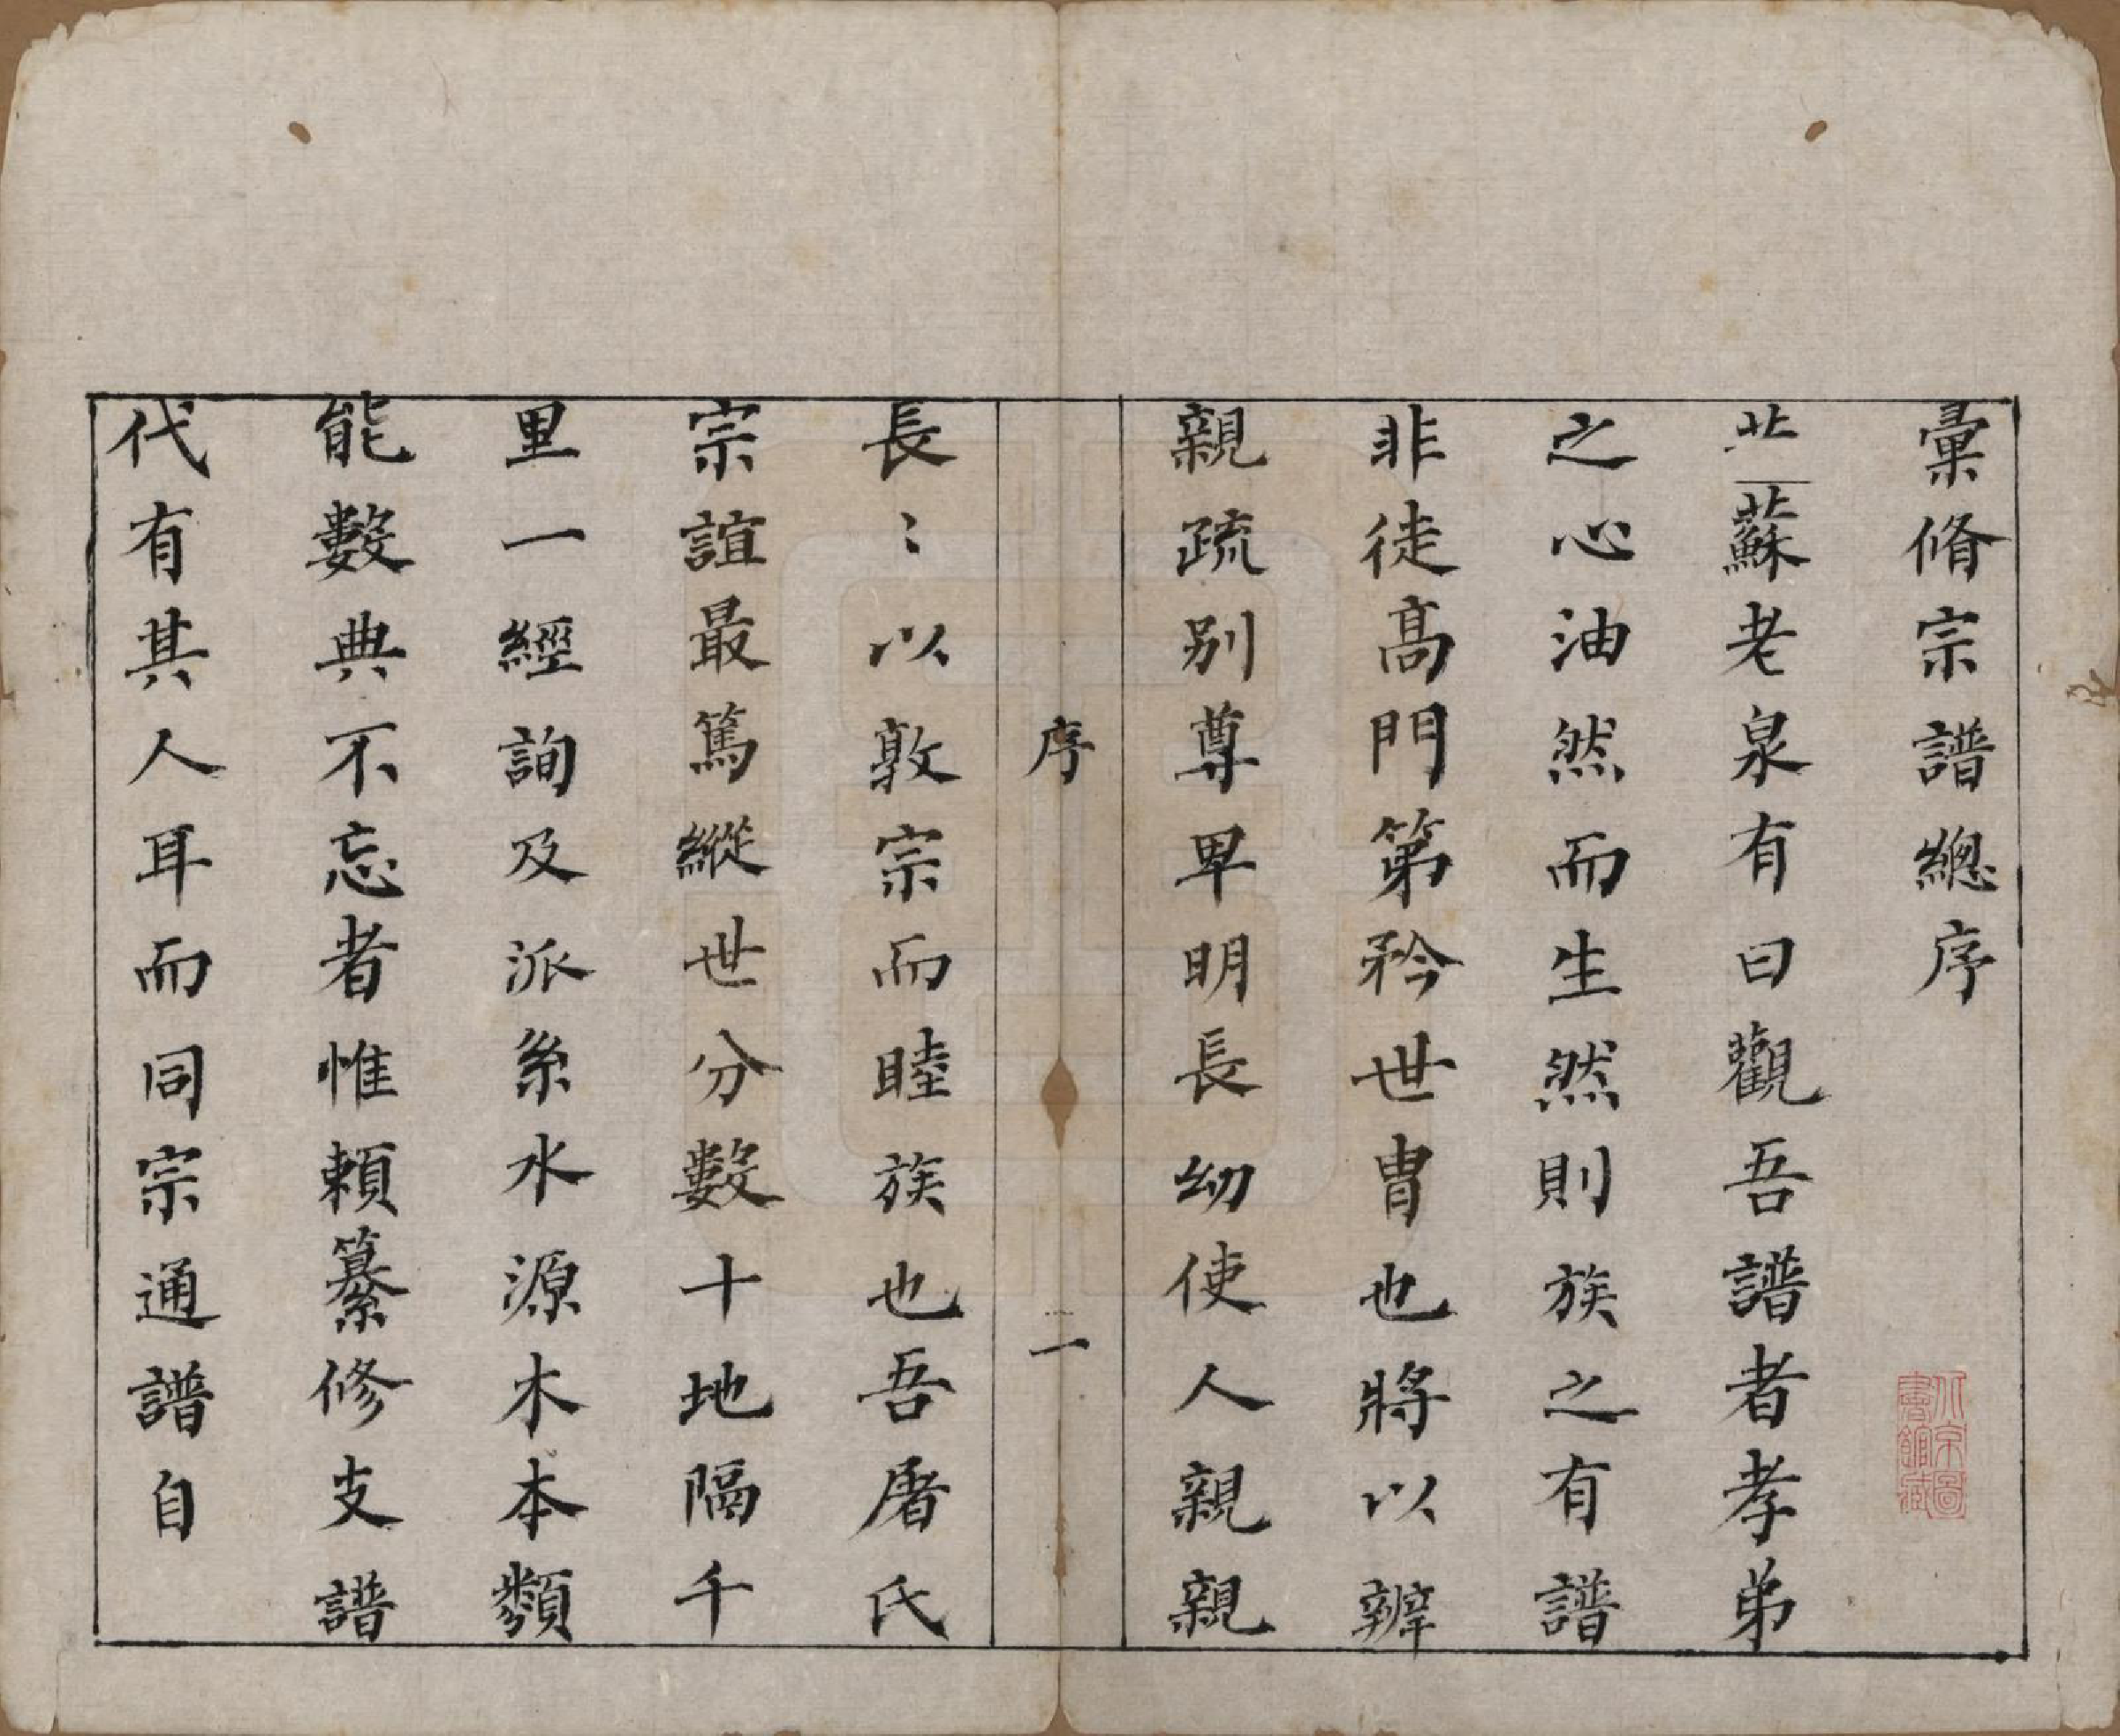 彙脩宗譜總序
昔蘇老泉有曰觀吾譜者孝弟
之心油然而生然則族之有譜
非徒高門第矜世冑也將以辨
親疏別尊卑明長幼使人親親
序
一
長〻以敦宗而睦族也吾屠氏
宗誼最篤縱世分數十地隔千
里一經詢及派系水源木本類
能數典不忘者惟賴纂修支譜
代有其人耳而同宗通譜自